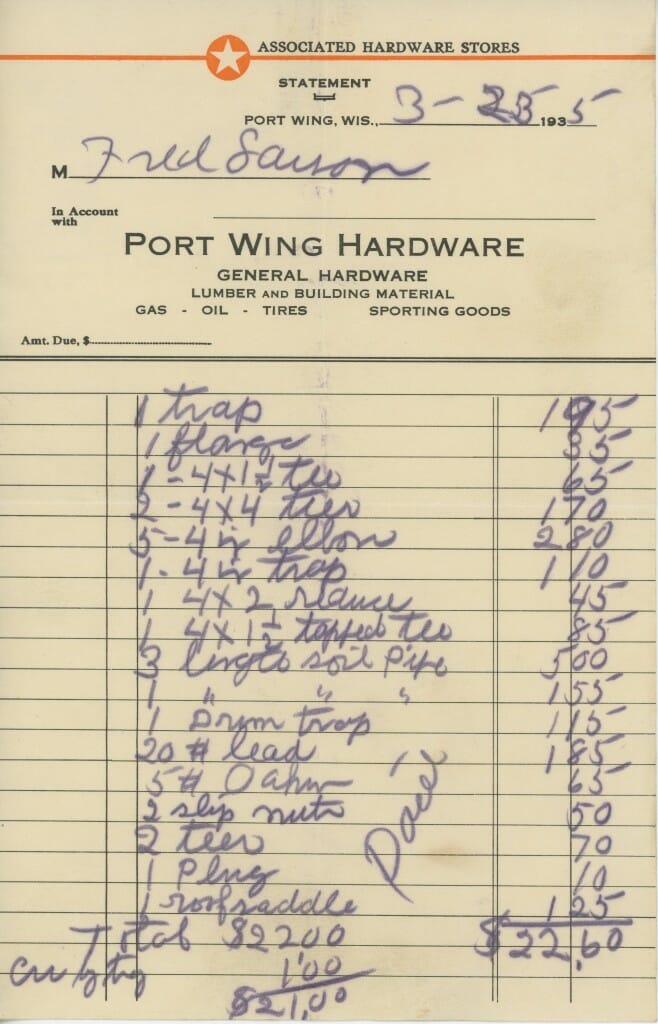 ASSOCIATED HARDWARE STORES
STATEMENT
PORT WING, WIS., 3-25 1935
M Fred
In Account with
PORT WING HARDWARE
GENERAL HARDWARE
LUMBER AND BUILDING MATERIAL
GAS - OIL - TIRES SPORTING GOODS
Amt. Due, $
1 trap 1 95
1 flange 35
1 - 4 x 1½ tee 65
2 - 4 x 4 tees 1 70
5 - 4 in elbow 2 80
1 - 4 in trap 1 10
1 4 x 2 reduce 45
1 4 x 1½ tapped tee 85
3 length soil pipe 5 00
1 " " " 1 55
1 Drum trap 1 15
20 # lead 1 85
5 # 65
2 slip nuts 50
2 tees 70
1 Plug 10
1 roof saddle 1 25
Total $22 00 $22.60
1.00
$21.00
Paid